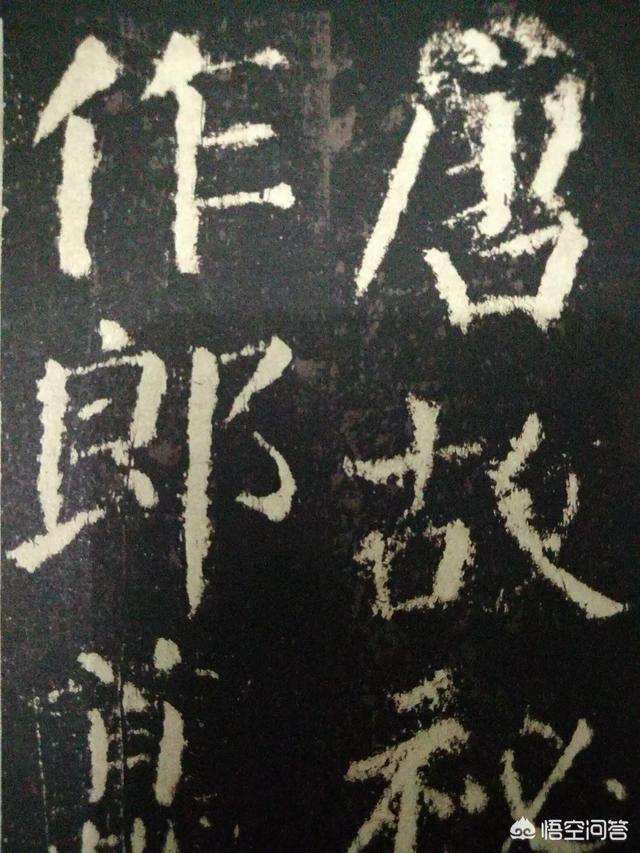 唐故秘
作郎
悟空问答